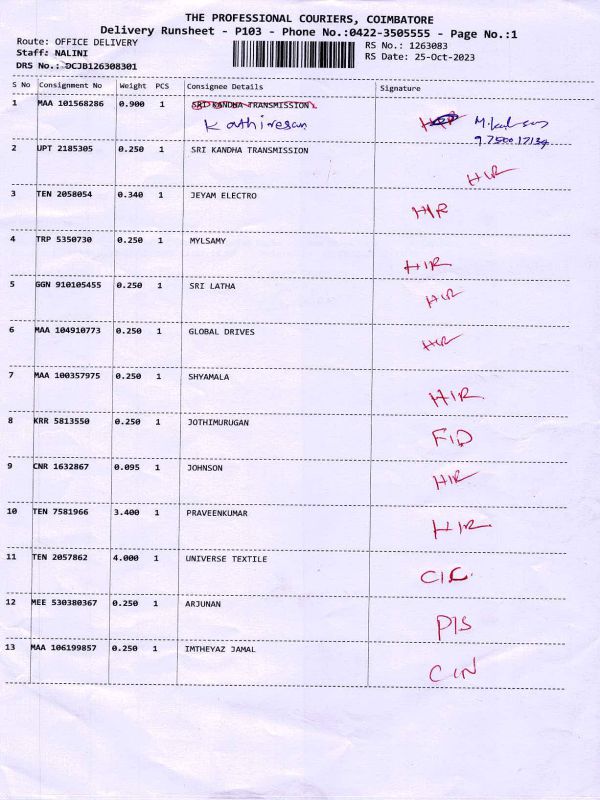 THE PROFESSIONAL COURIERS, COIMBATORE
Delivery Runsheet - P103 - Phone No.:0422-3505555 - Page No.:1
Route: OFFICE DELIVERY
Staff: NALINI
DRS No.: DCJB126308301
RS No.: 1263083
RS Date: 25-Oct-2023
S No Consignment No Weight PCS Consignee Details Signature
1 MAA 101568286 0.900 1 SRI KANDHA TRANSMISSION
Kathiresan
2 UPT 2185305 0.250 1 SRI KANDHA TRANSMISSION HIR
3 TEN 2058054 0.340 1 JEYAM ELECTRO HIR
4 TRP 5350730 0.250 1 MYLSAMY HIR
5 GGN 910105455 0.250 1 SRI LATHA HIR
6 MAA 104910773 0.250 1 GLOBAL DRIVES HIR
7 MAA 100357975 0.250 1 SHYAMALA HIR
8 KRR 5813550 0.250 1 JOTHIMURUGAN FID
9 CNR 1632867 0.095 1 JOHNSON HIR
10 TEN 7581966 3.400 1 PRAVEENKUMAR HIR
11 TEN 2057862 4.000 1 UNIVERSE TEXTILE CIL
12 MEE 530380367 0.250 1 ARJUNAN PIS
13 MAA 106199857 0.250 1 IMTHEYAZ JAMAL CIN